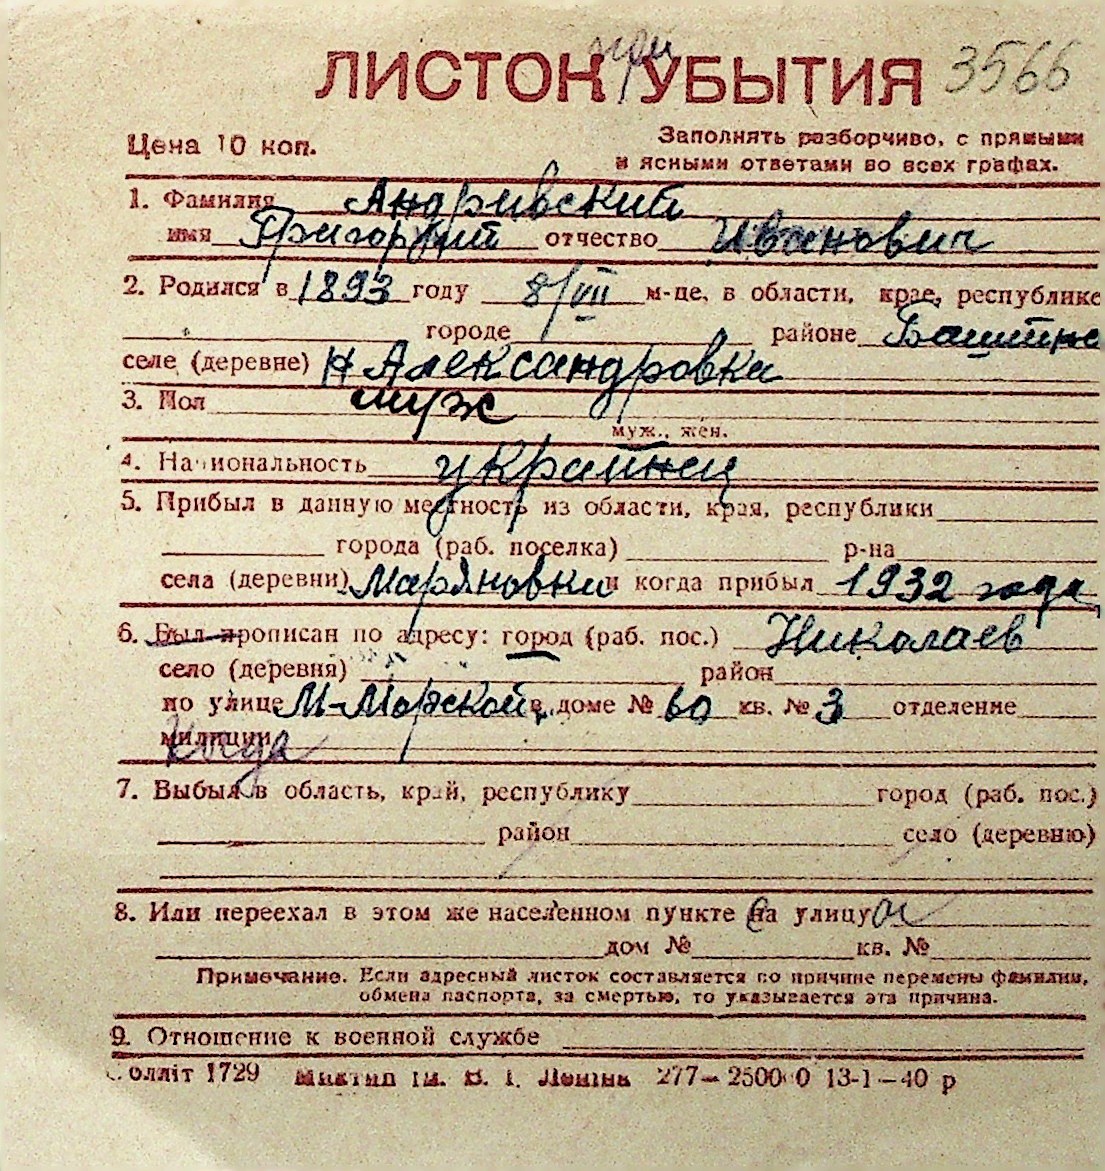 ЛИСТОК при УБЫТИЯ 3566
Цена 10 коп.
Заполнять разборчиво, с прямыми
и ясными ответами во всех графах.
1. Фамилия Андривский
имя Григорий отчество Иванович
2. Родился в 1893 году 8/VII м-це, в области, крае, республике
городе районе Баштанс
селе (деревне) Н Александровка
3. Пол муж
муж., жен.
4. Национальность украинец
5. Прибыл в данную местность из области, края, республики
города (раб. поселка) р-на
села (деревни) Марьяновки и когда прибыл 1932 года
6. Был прописан по адресу: город (раб. пос.) Николаев
село (деревня) район
по улице М-Морской в доме № 60 кв. № 3 отделение
милиции
Когда
7. Выбыл в область, край, республику город (раб. пос.)
район село (деревню)
8. Или переехал в этом же населенном пункте на улицу
дом № кв. №
Примечание. Если адресный листок составляется по причине перемены фамилии,
обмена паспорта, за смертью, то указывается эта причина.
9. Отношение к военной службе
олліт 1729 Миктип ім. В. І. Леніна 277—250000 13-1—40 р